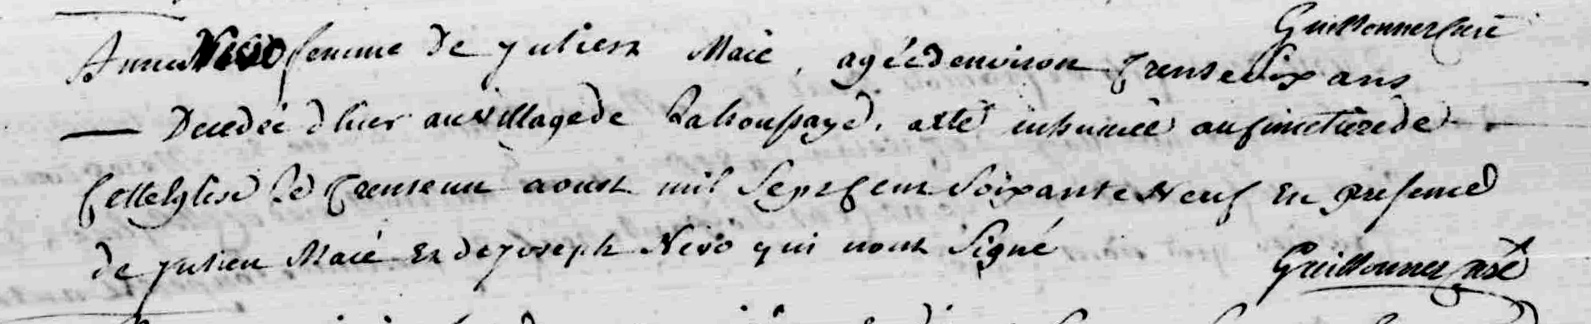 Guillonnet Curé
Anne Nivo femme de julien Maié, agée denviron trente six ans
Decedée dhier au village de Lahoussaye, a eté inhumée au simetiere de
cette Eglise le trente un aoust mil Sept cent Soixante Neuf En presence
de julien Maié Et de joseph Nivo qui nont Signé
Guillonnet Curé